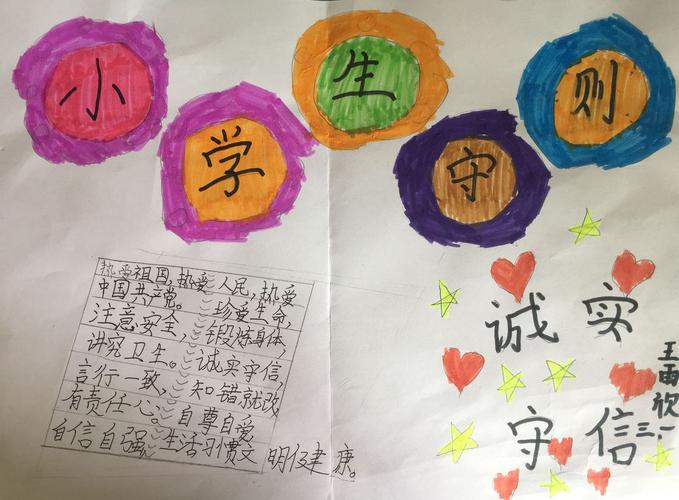 小学生守则
热爱祖国,热爱人民,热爱
中国共产党。珍爱生命,
注意安全,锻炼身体,
讲究卫生。诚实守信,
言行一致,知错就改
有责任心。自尊自爱
自信自强生活习惯文明健康。
诚实
守信
王雨欣
三.一